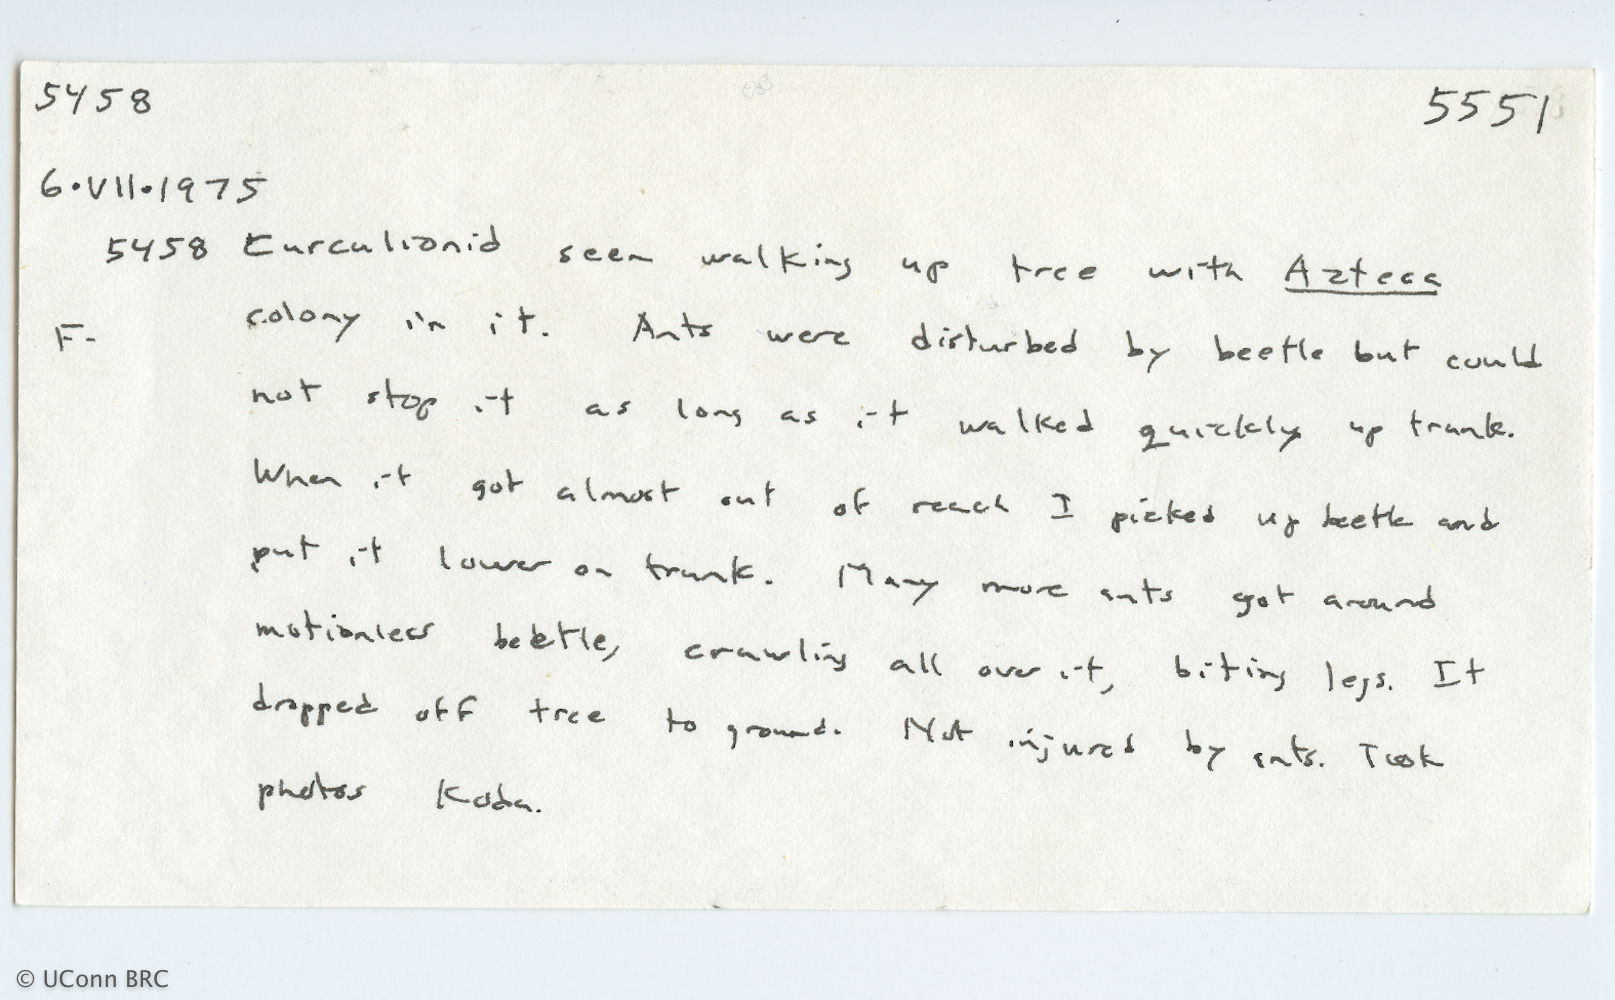 5458 5551
6·VII·1975
5458 Curculionid seen walking up tree with Azteca
F- colony in it. Ants were disturbed by beetle but could
not stop it as long as it walked quickly up trunk.
When it got almost out of reach I picked up beetle and
put it lower on trunk. Many more ants got around
motionless beetle, crawling all over it, biting legs. It
dropped off tree to ground. Not injured by ants. Took
photos Koda.
© UConn BRC